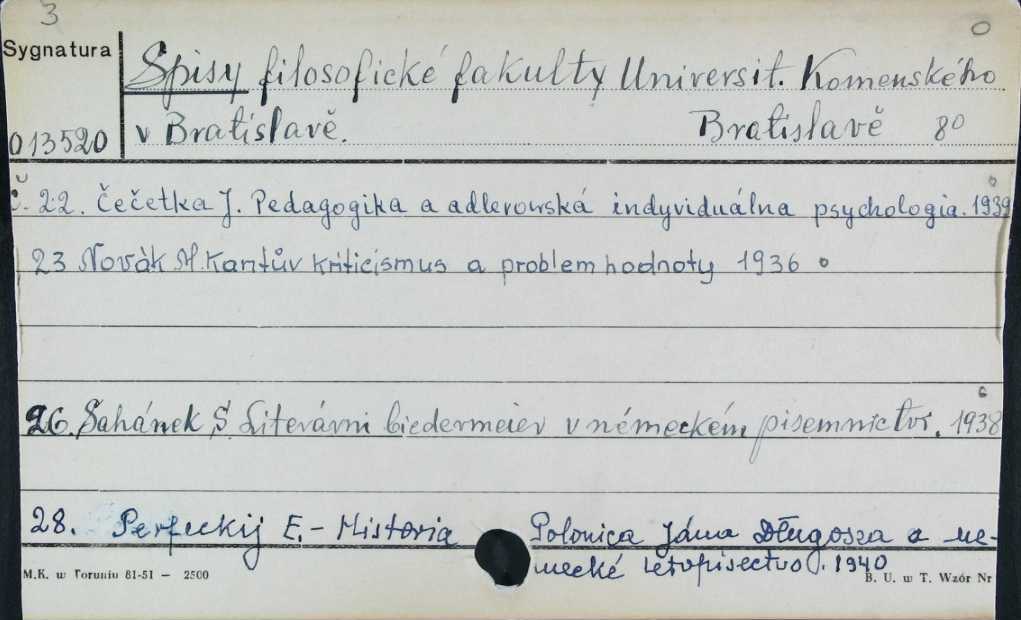 3
Sygnatura
013520
Spisy filosofické fakulty Universit. Komenského
v Bratislavě. Bratislavě 80
č. 22. Čečetka J. Pedagogika a adlerowská indyviduálna psychologia. 1939
23 Novák M. Kantův kriticismus a problem hodnoty 1936
26. Šahánek, S. Literárni biedermeier v německém pisemnictvi. 1938
28. Perfeckij E. - Historia Polonica Jána Długosza a ne-
mecké letopisectvo. 1940
M.K. w Toruniu 81-51 — 2500
B. U. w T. Wzór Nr